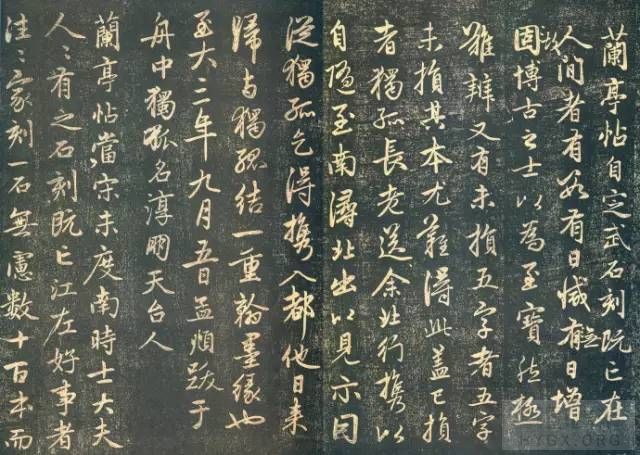 蘭亭帖自定武石刻既亡在
人間者有數有日減無日增
故博古之士以為至寶然極
難辨又有未損五字者五字
未損其本尤難得此蓋已損
者獨孤長老送余北行攜以
自隨至南潯北出以見示因
從獨孤乞得攜入都他日来
歸與獨孤結一重翰墨緣也
至大三年九月五日孟頫跋于
舟中獨孤名淳朋天台人
蘭亭帖當宋未度南時士大夫
人〻有之石刻既亡江左好事者
往〻家刻一石無慮數十百本而
HYGX.ORG